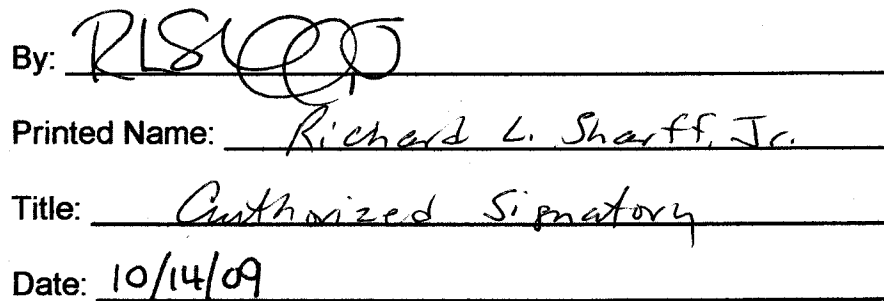 By:
Printed Name: Richard L. Sharff, Jr.
Title: Authorized Signatory
Date: 10/14/09